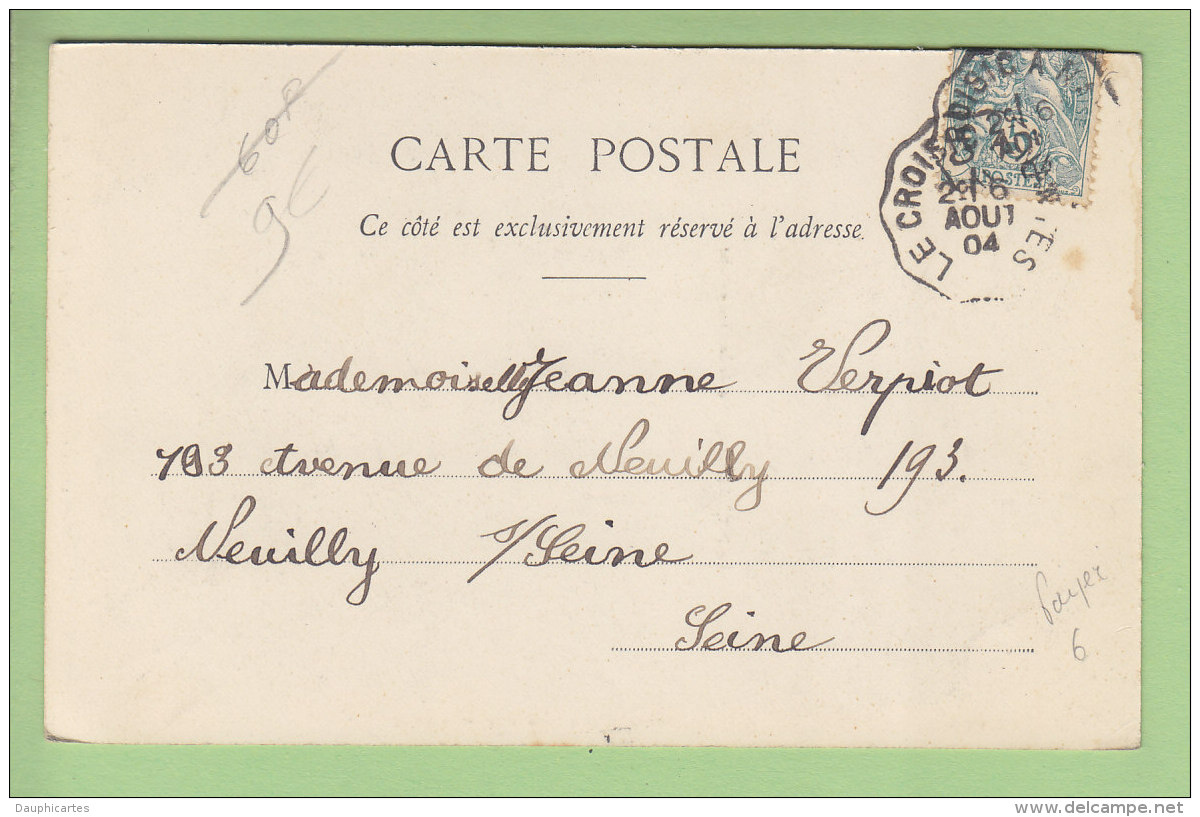 60F
9€
CARTE POSTALE
Ce côté est exclusivement réservé à l'adresse.
LE CROISIC A NANTES
2E 6
AOUT
04
POSTES
Mademoiselle Jeanne Verpiot
193 Avenue de Neuilly 193.
Neuilly s/Seine
Seine
6
Dauphicartes
delcampe.net